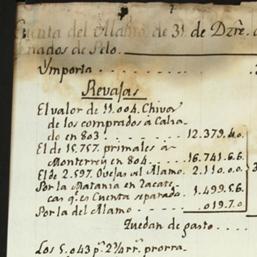 Cuenta del Alamo de 31 de Dzre.
nados de Pelo
Ymporta
Revajas
El valor de 11.004. Chivos
de los comprados à Calza
do en 803 . . . . . . 12.379.4.0.
El de 15.757. primales à
Monterrey en 804. . . . 16.741.6.6.
El de 2.597. Ovejas al Alamo 2.110.0.0.
Por la Matania en Zacate-
cas qe. en Cuenta separada 1.499.5.6.
Por la del Alamo . . . . . 019.7.0
Quedan de gasto
Los 5.043 ps. 2¾ rr. prorra-